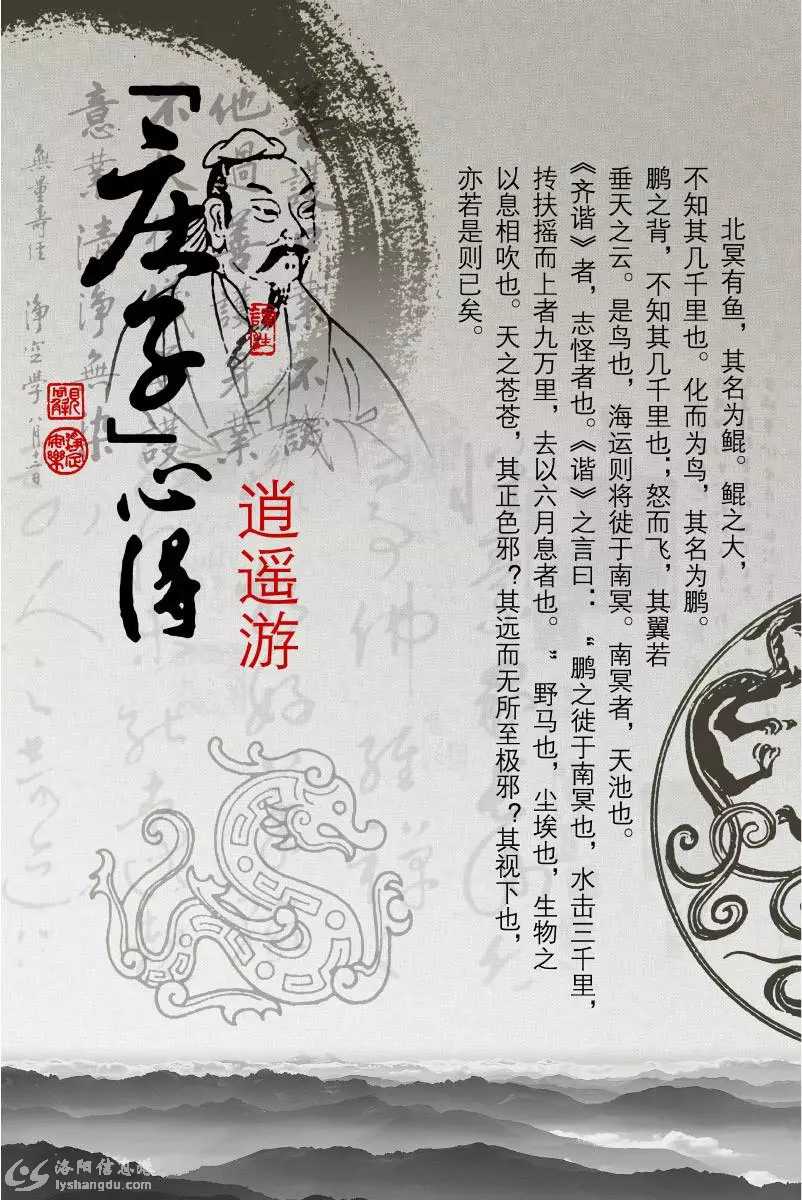 「庄子」心得
逍遥游
北冥有鱼，其名为鲲。鲲之大，
不知其几千里也。化而为鸟，其名为鹏。
鹏之背，不知其几千里也；怒而飞，其翼若
垂天之云。是鸟也，海运则将徙于南冥。南冥者，天池也。
《齐谐》者，志怪者也。《谐》之言曰：“鹏之徙于南冥也，水击三千里，
抟扶摇而上者九万里，去以六月息者也。”野马也，尘埃也，生物之
以息相吹也。天之苍苍，其正色邪？其远而无所至极邪？其视下也，
亦若是则已矣。
他過善護身業
意業清淨無染
洛阳信息港
lyshangdu.com